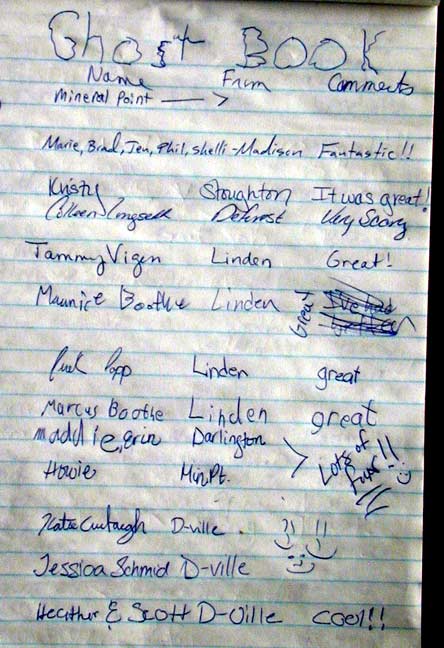 Ghost Book
Name From Comments
Mineral Point
Marie, Brad, Jen, Phil, Shelli - Madison Fantastic!!
Kristy Stoughton It was great!
Colleen Deforest Very Scary
Tammy Vigen Linden Great!
Maurice Boothe Linden Great!
Popp Linden great
Marcus Boothe Linden great
maddie, erin Darlington
Howie Min Pt. Lots of fun!!
Katie D-ville.
Jessica Schmid D-ville
Heather & Scott D-ville cool!!